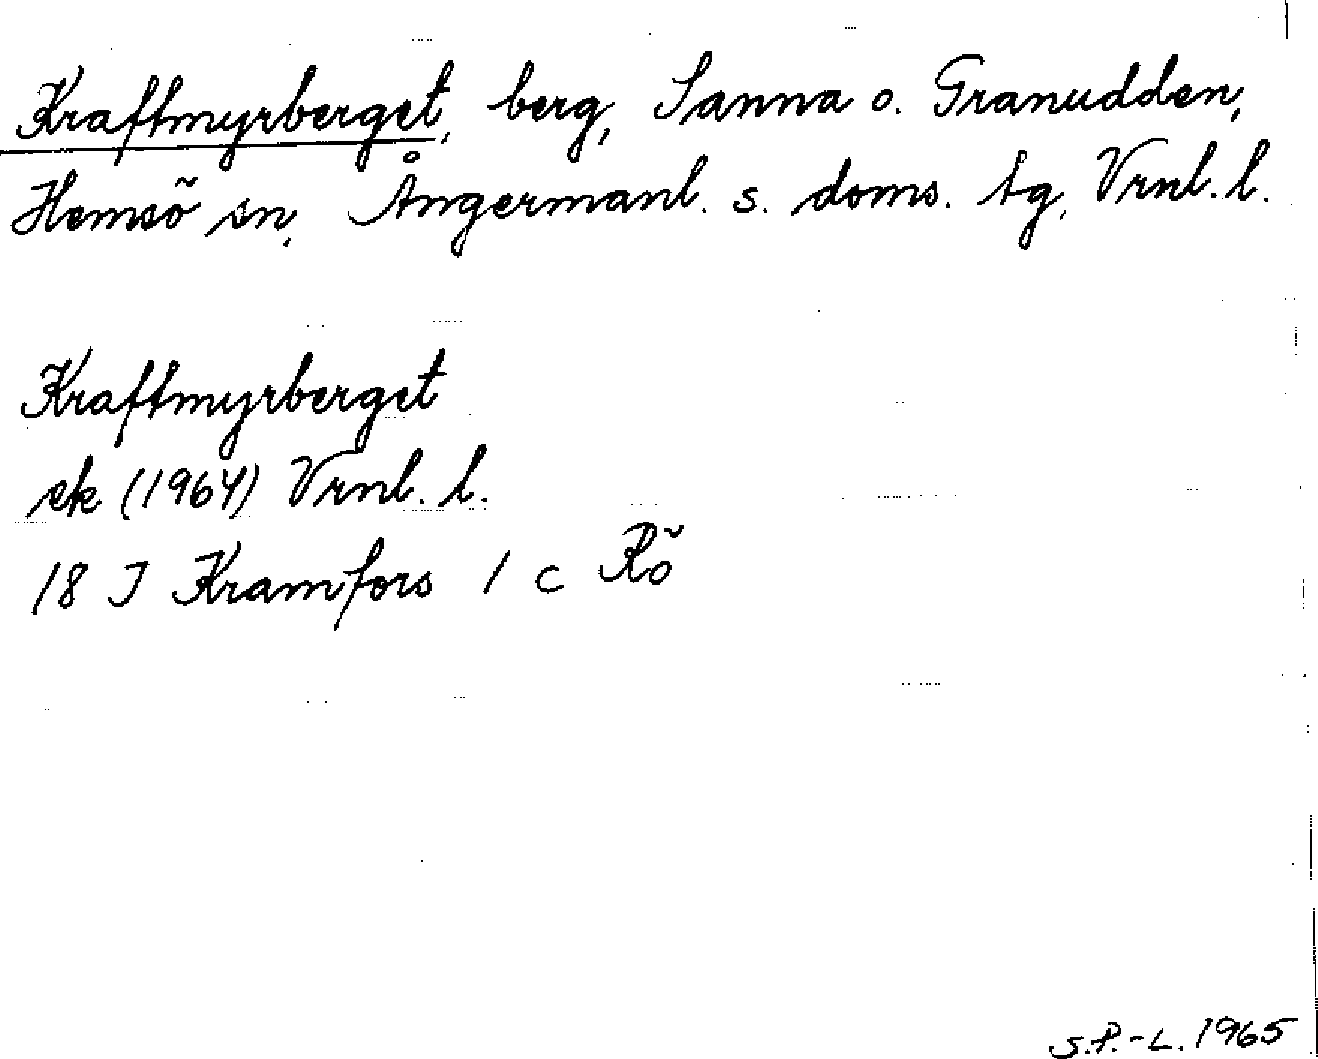 Kraftmyrberget, berg, Sanna o. Granudden,
Hemsö sn, Ångermanl. s. doms. tg, Vrnl. l.
Kraftmyrberget
ek (1964) Vrnl. l.
18 I Kramfors 1 c Rö
S.P.-L. 1965